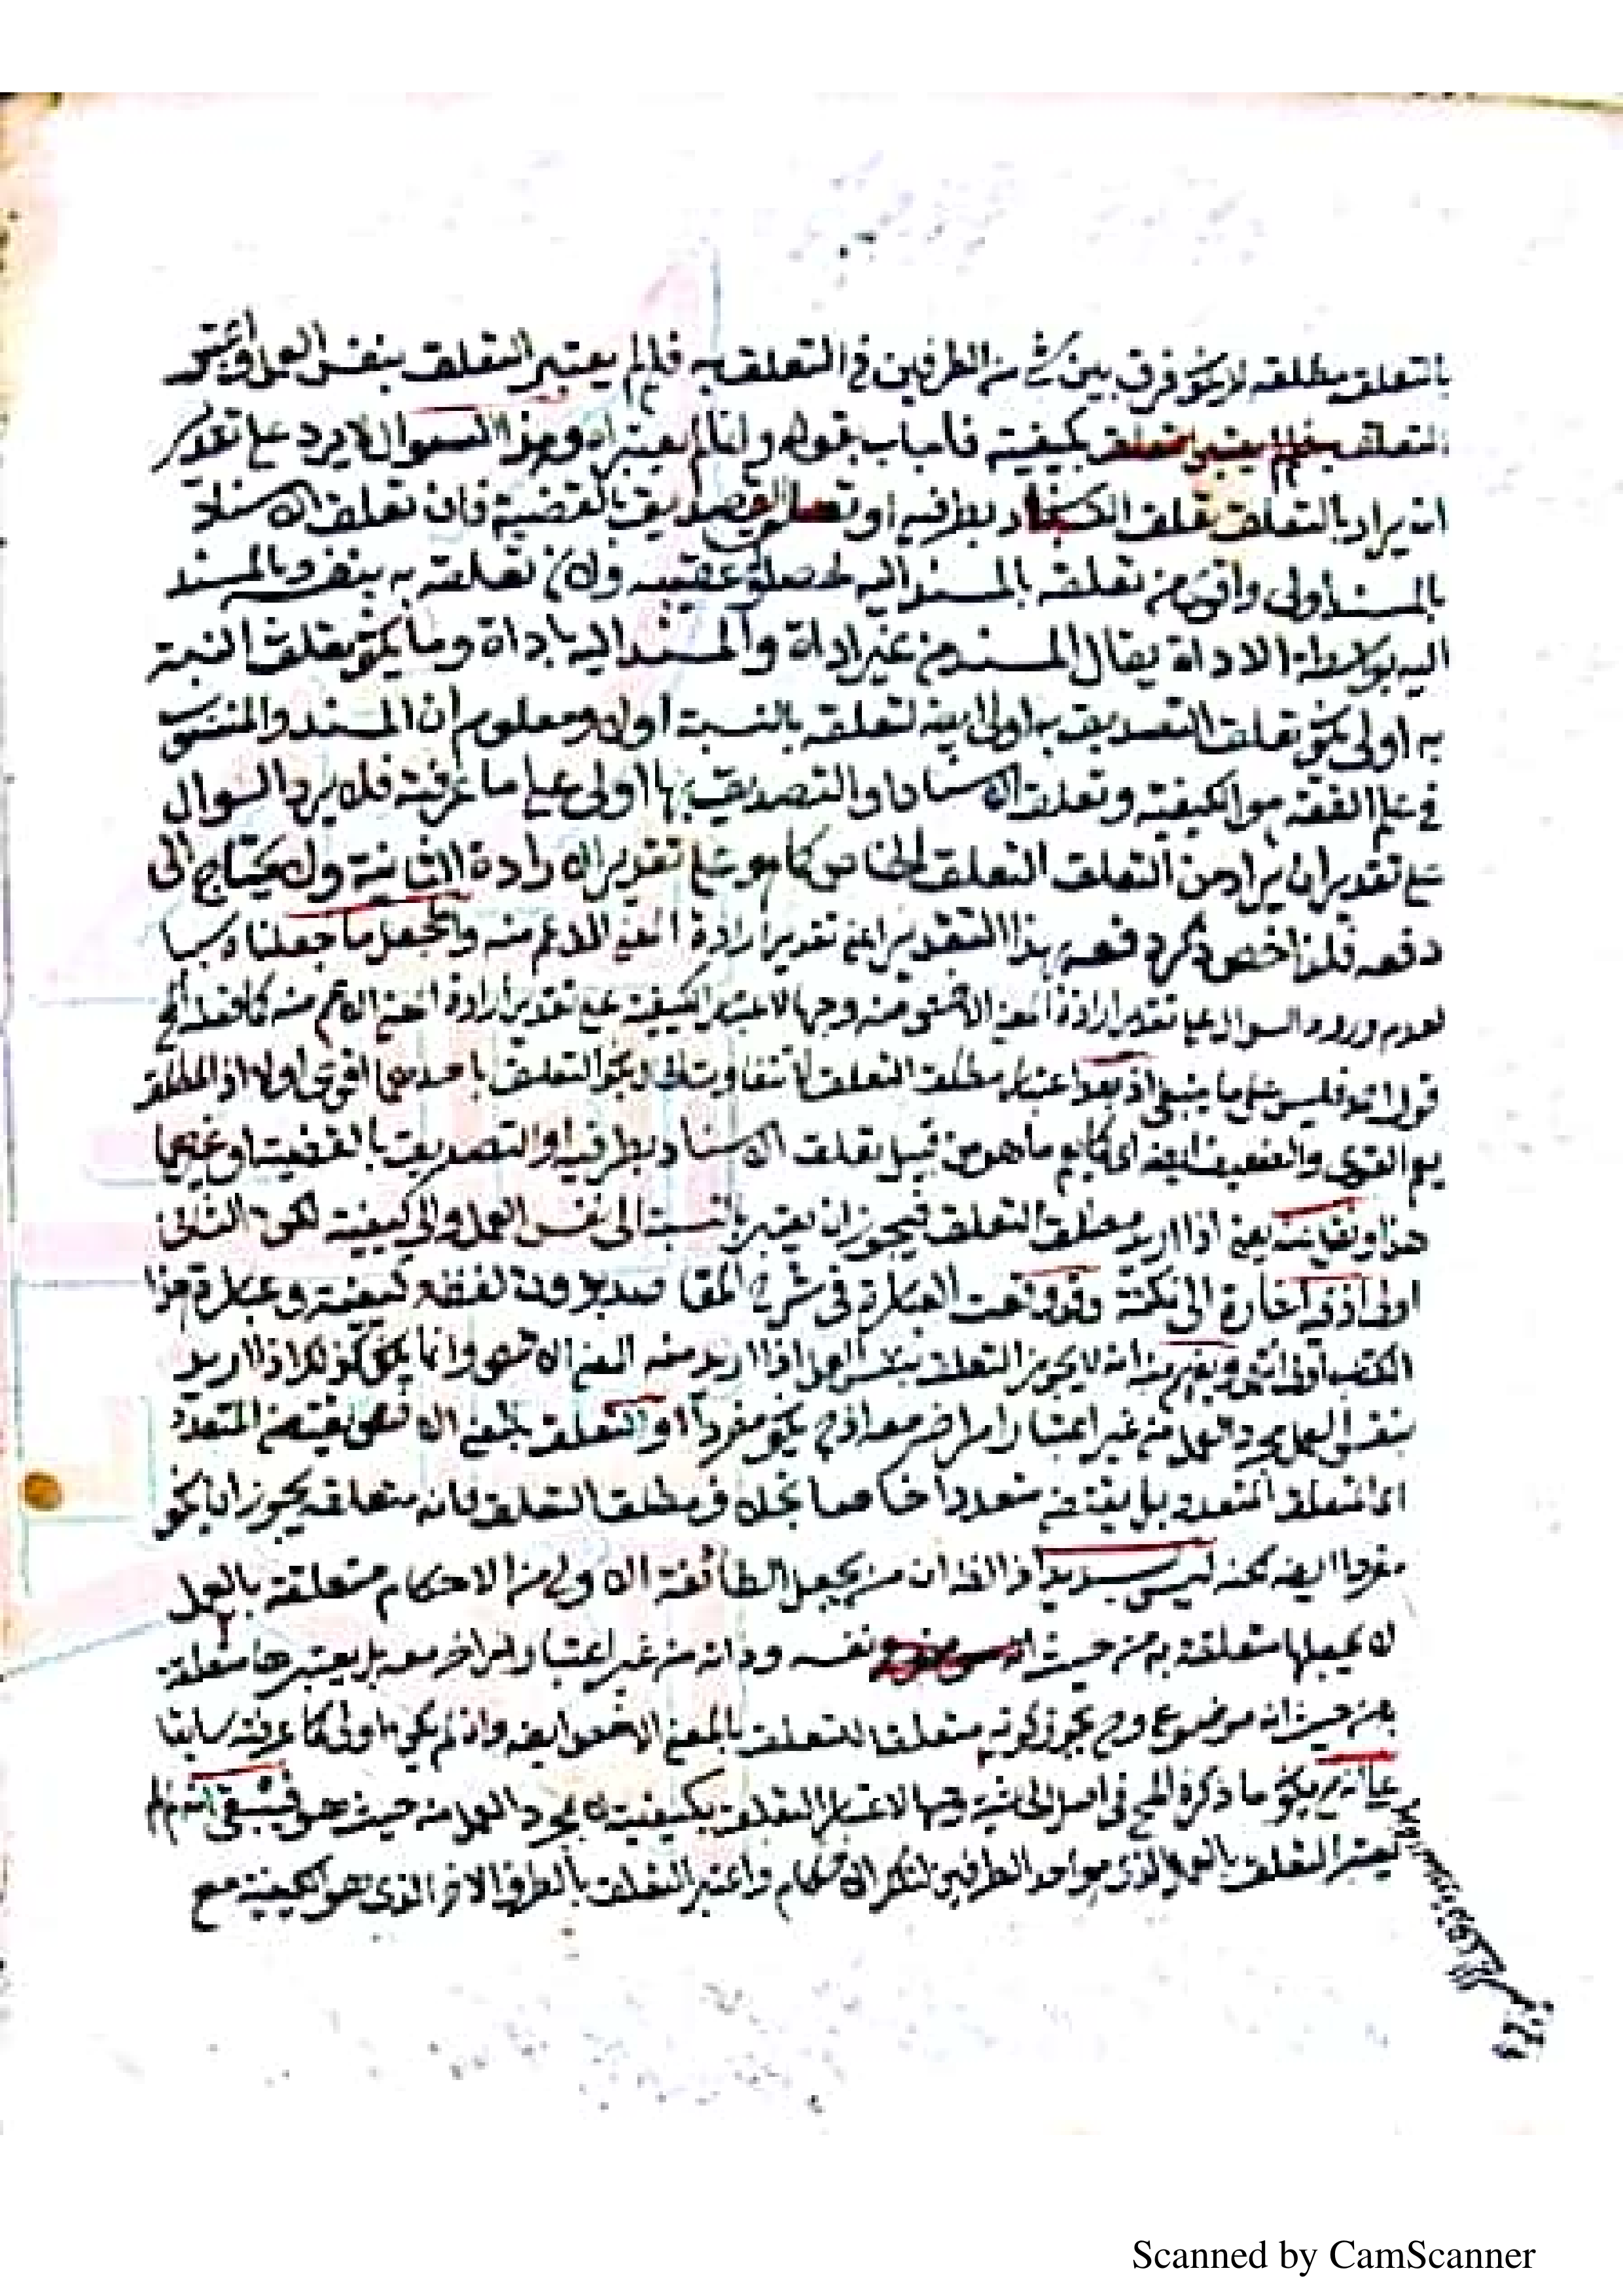 بالتعلق مطلقه لا يكون فرق بين شئ من الطرفين في التعلق به فلم لم يعتبر التعلق بنفس العمل واعتبر
التعلق بكيفيته فاجاب بقوله وانما لم يعتبر اه وهذا السوال لا يرد على تقدير
ان يراد بالتعلق تعلق الاسناد بطرفيه او تعلق التصديق بالقضية فان تعلق الاسناد
بالمسند اولى واقوى من تعلقه بالمسند اليه لحصوله عقيبه ولان تعلقه به بنفسه وبالمسند
اليه بواسطة الاداة يقال المسند من غير اداة والمسند اليه باداة وما يكون تعلق النسبة
به اولى يكون تعلق التصديق به اولى ايضه لتعلقه بالنسبة اولا ومعلوم ان المسند والمنسوب
في علم الفقه هو الكيفية وتعلق الاسناد او التصديق بها اولى على ما عرفته فلا يرد السوال
على تقدير ان يراد من التعلق التعلق الخاص كما هو على تقدير الارادة الثانية ولا يحتاج الى
دفعه فلذا خص دفعه بهذا التقدير اعني تقدير ارادة المعنى الاعم منه والجعل ما جعلناه سببا
لعدم ورود السوال على تقدير ارادة المعنى الاخص منه وجها لاعتبار الكيفية على تقدير ارادة المعنى الاعم منه كما فعله
قول احمد فليس على ما ينبغي اذ بعد اعتبار مطلق التعلق لا تفاوت في كون التعلق باحدهما اقوى اولا اذ المطلق
يعم القوي والضعيف ايضه اي كما يعم ما هو من قبيل تعلق الاسناد بطرفيه او التصديق بالقضية او غيرهما
هذا وتعاينه يعني اذا اريد مطلق التعلق فيجوز ان يعتبر بالنسبة الى نفس العمل والى كيفيته لكن الثاني
اولى اذ فيه اشارة الى نكتة وقد وقعت العبارة في شرح المقاصد بدون لفظه كيفية وعبارة هذا
الكتاب اولى انتهى ويفهم منه انه لا يجوز التعلق بنفس العمل اذا اريد منه المعنى الاخص وانما يكون كذلك اذا اريد
بنفس العمل مجرد العمل من غير اعتبار امر اخر معه اذ ح يكون مفردا والتعلق بالمعنى الاخص يقتضي المتعدد
اى المتعلق المتعدد بل يقتضي متعددا خاصا بخلاف مطلق التعلق فانه متعلقه يجوز ان يكون
مفردا ايضه لكنه ليس بسديد اذ الظ ان من يجعل الطائفة الاولى من الاحكام متعلقة بالعمل
لا يجعلها متعلقة به من حيث نفسه وذاته من غير اعتبار امر اخر معه بل يعتبرها متعلقة
به من حيث انه موضوع وح يجوز كونه متعلقا للتعلق بالمعنى الاخص ايضه وان لم يكن اولى كما عرفته سابقا
على انه يكون ما ذكره المحشى في اصل الحاشية وجها لاعتبار التعلق بكيفيته لا بمجرد العمل من حيث هو فيبقى انه لم لم
يعتبر التعلق بالعمل الذى هو احد الطرفين لتلك الاحكام واعتبر التعلق بالطرف الاخر الذى هو الكيفية مع